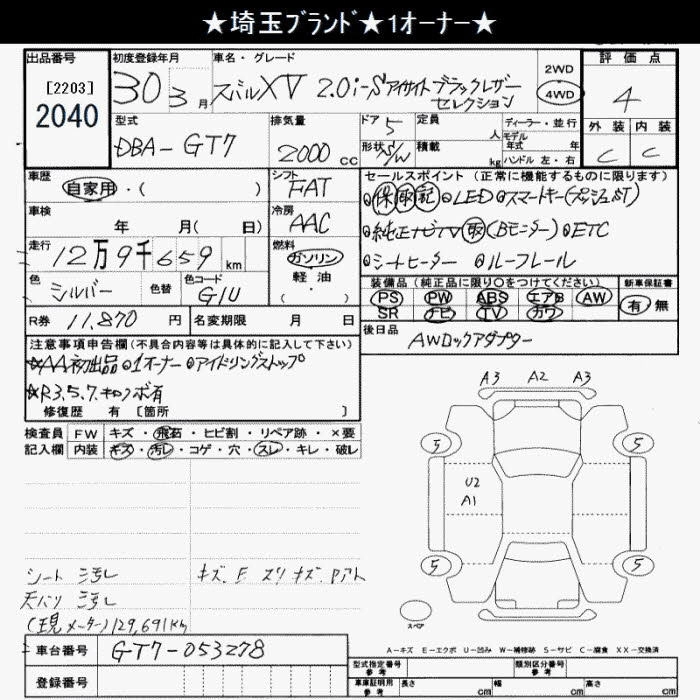 ★埼玉ブランド★1オーナー★
出品番号 初度登録年月 車名・グレード 評価点
[2203] 30 3月 スバルXV 2.0i-Sアイサイト ブラックレザーセレクション 2WD 4WD 4
2040
型式 排気量 ドア 定員 人 ディーラー・並行 外装 内装
DBA-GT7 2000cc 5 モデル年式 年
形状 S/W 積載 kg ハンドル 左・右 C C
車歴 シフト セールスポイント(正常に機能するものに限ります)
自家用・( ) FAT ◎保取記◎LED◎スマートキー(プッシュST)
車検 冷房
年 月( 日) AAC ◎純正ナビTV取(Bモニター)◎ETC
走行 燃料
12万9千659km ガソリン ◎シートヒーター ◎ルーフレール
色 色替 色コード 軽・油 装備品(純正品に限り○をつけてください) 新車保証書
シルバー G1U ・( ) PS PW ABS エアB AW 有 無
SR ナビ TV カワ
R券 11,870円 名変期限 月 日 後日品
AWロックアダプター
注意事項申告欄(不具合内容等は具体的に記入して下さい)
★AA初出品◎1オーナー◎アイドリングストップ
★R3,5,7.キロ、ボ有
修復歴 有[箇所 ]
検査員 FW キズ・飛石・ヒビ割・リペア跡・×要
記入欄 内装 キズ・汚レ・コゲ・穴・スレ・キレ・破レ
A3 A2 A3
5 5
U2
A1
5 5
シート 汚レ キズ、E スリキズ、Pアト
天バリ 汚レ
(現メーター)129,691km
スペア
A-キズ E-エクボ U-凹み W-補修跡 S-サビ C-腐食 XX-交換済
車台番号 GT7-053278
登録番号
型式指定番号 参考 類別区分番号 参考
車庫証明用 参考 長さ cm 幅 cm 高さ cm